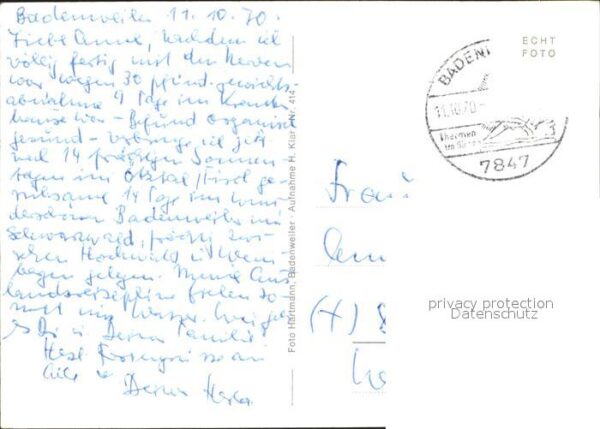 Badenweiler 11.10.70.
Liebe Anne, nachdem ich
völlig fertig mit den Nerven
war wegen 30 pfund. gewichts
abnahme 9 Tage im Kranken
hause war - Befund organisch
gesund - verbringe ich jetzt
nach 14 Sonnen-
tagen im Ötztal/Tirol ge-
ruhsame 14 Tage im wun-
derschönen Badenweiler im
Schwarzwald, zwi-
schen Hochwald u. Wein-
bergen gelegen. Meine Aus-
landsreisepläne fielen so-
mit ins Wasser. Wie geht
es Dir u. Deiner Familie
an
Alle
Deine
Foto Hartmann, Badenweiler - Aufnahme H. Klar / Nr. 414
ECHT
FOTO
BADEN
11.10.70
Thermen
im Süden
7847
Frau
privacy protection
Datenschutz